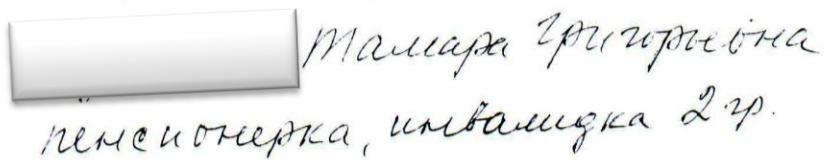 Тамара Григорьевна
пенсионерка, инвалидка 2 гр.